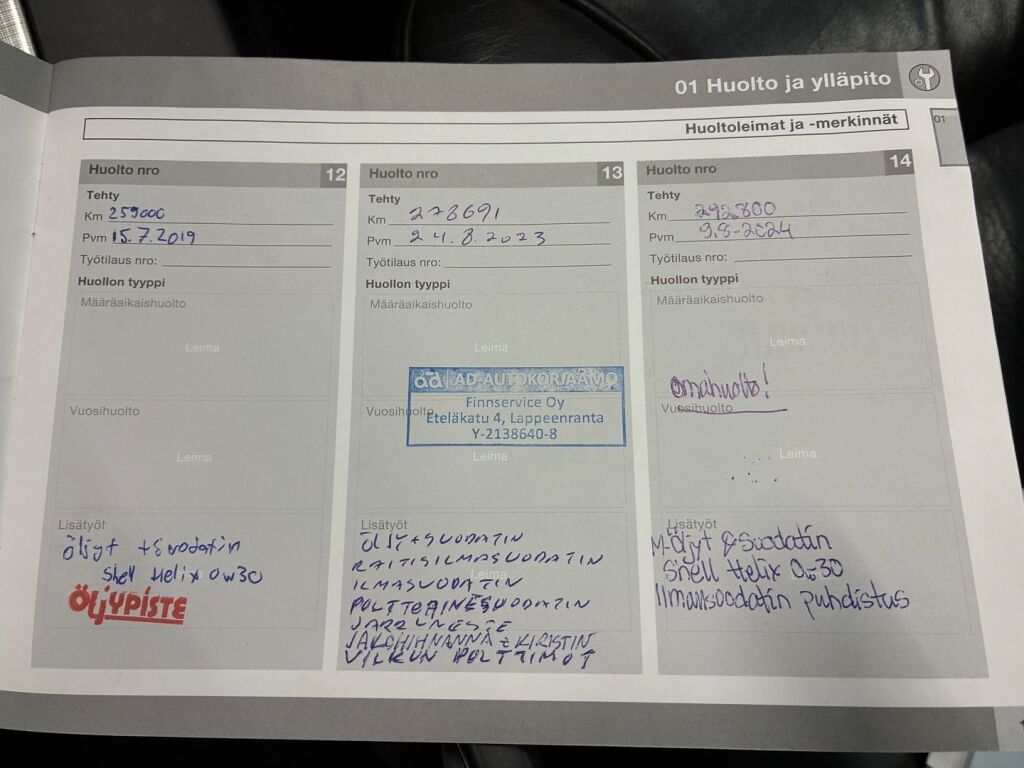 01 Huolto ja ylläpito
01
Huoltoleimat ja -merkinnät
Huolto nro 12
Tehty
Km 259000
Pvm 15.7.2019
Työtilaus nro:
Huollon tyyppi
Määräaikaishuolto
Leima
Vuosihuolto
Leima
Lisätyöt
Öljyt + Suodatin
Shell Helix 0w30
ÖLJYPISTE
Huolto nro 13
Tehty
Km 278691
Pvm 24.8.2023
Työtilaus nro:
Huollon tyyppi
Määräaikaishuolto
Leima
ad AD-AUTOKORJAAMO
Finnservice Oy
Vuosihuolto
Eteläkatu 4, Lappeenranta
Y-2138640-8
Leima
Lisätyöt
ÖLJY+SUODATIN
RAITISILMASUODATIN
Leima
ILMASUODATIN
POLTTOAINESUODATIN
JARRUNESTE
JAKOHIHNANNA + KIRISTIN
VILKUN POLTTIMOT
Huolto nro 14
Tehty
Km 292800
Pvm 9.8-2024
Työtilaus nro:
Huollon tyyppi
Määräaikaishuolto
Leima
omahuolto!
Vuosihuolto
Leima
Lisätyöt
M-Öljyt & Suodatin
Shell Helix 0w30
Ilmansuodatin puhdistus